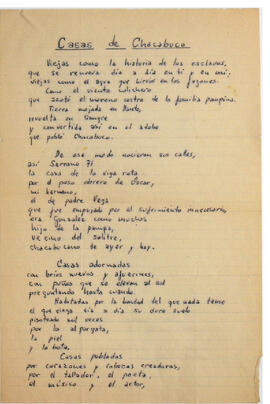 Casas de Chacabuco
Viejas como la historia de los esclavos,
que se renueva día a día en ti y en mí,
viejas como el agua que hirvió en los fogones.
Como el viento
que azotó el moreno rostro de la familia pampina.
Tierra mojada en llanto,
revuelta en sangre
y convertida así en el adobe
que pobló Chacabuco.
De ese modo nacieron sus calles,
así Serrano 71
la casa de la viga rota
por el paso obrero de Oscar,
mi hermano,
el de padre Vega
que fue empujado por el sufrimiento innecesario,
era González como muchos
hijo de la pampa,
vecino del salitre,
chacabucano de ayer y hoy.
Casas adornadas
con bríos nuevos y
con puños que se elevan al sol
preguntando hasta cuando.
Habitadas por la bondad del que nada teme
el que entrega día a día su duro suelo
pisoteado mil veces
por la alpargata,
la piel
y la bota.
Casas pobladas
por corazones y cabezas creadoras,
por el tallador, el poeta,
el músico y el actor,